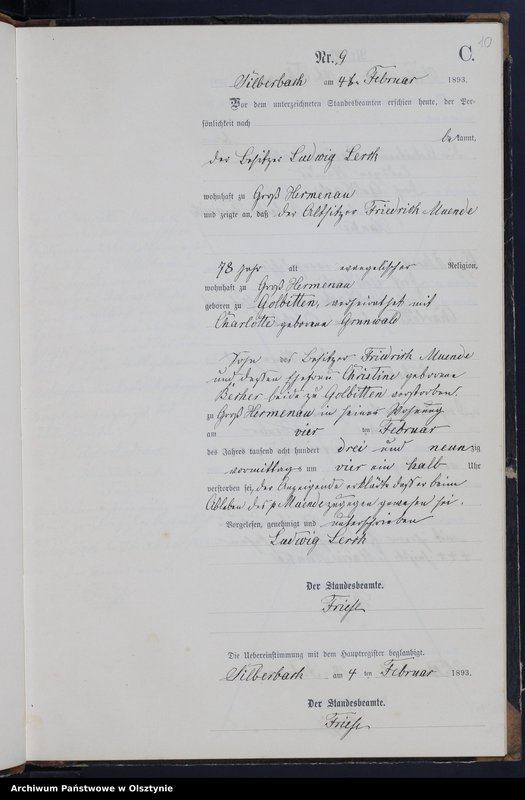 10
Nr. 9
C.
Silberbach am 4t. Februar 1893.
Vor dem unterzeichneten Standesbeamten erschien heute, der Per-
sönlichkeit nach
bekannt,
der Besitzer Ludwig
wohnhaft zu Groß Hermenau
und zeigte an, daß der Altsitzer Friedrich Muende
78 Jahr alt evangelischer Religion,
wohnhaft zu Groß Hermenau
geboren zu Golbitten, verheirathet mit
Charlotte geborene Grunwald
Sohn des Besitzer Friedrich Muende
und dessen Ehefrau Christine geborene
beide zu Golbitten verstorben.
zu Groß Hermenau in seiner Wohnung
am vier ten Februar
des Jahres tausend acht hundert drei und neunzig
vormittags um vier ein halb Uhr
verstorben sei, der Anzeigende erklärte daß er beim
Ableben des p Muende zugegen gewesen sei.
Vorgelesen, genehmigt und unterschrieben
Ludwig
Der Standesbeamte.
Die Uebereinstimmung mit dem Hauptregister beglaubigt.
Silberbach am 4 ten Februar 1893.
Der Standesbeamte.
Archiwum Państwowe w Olsztynie